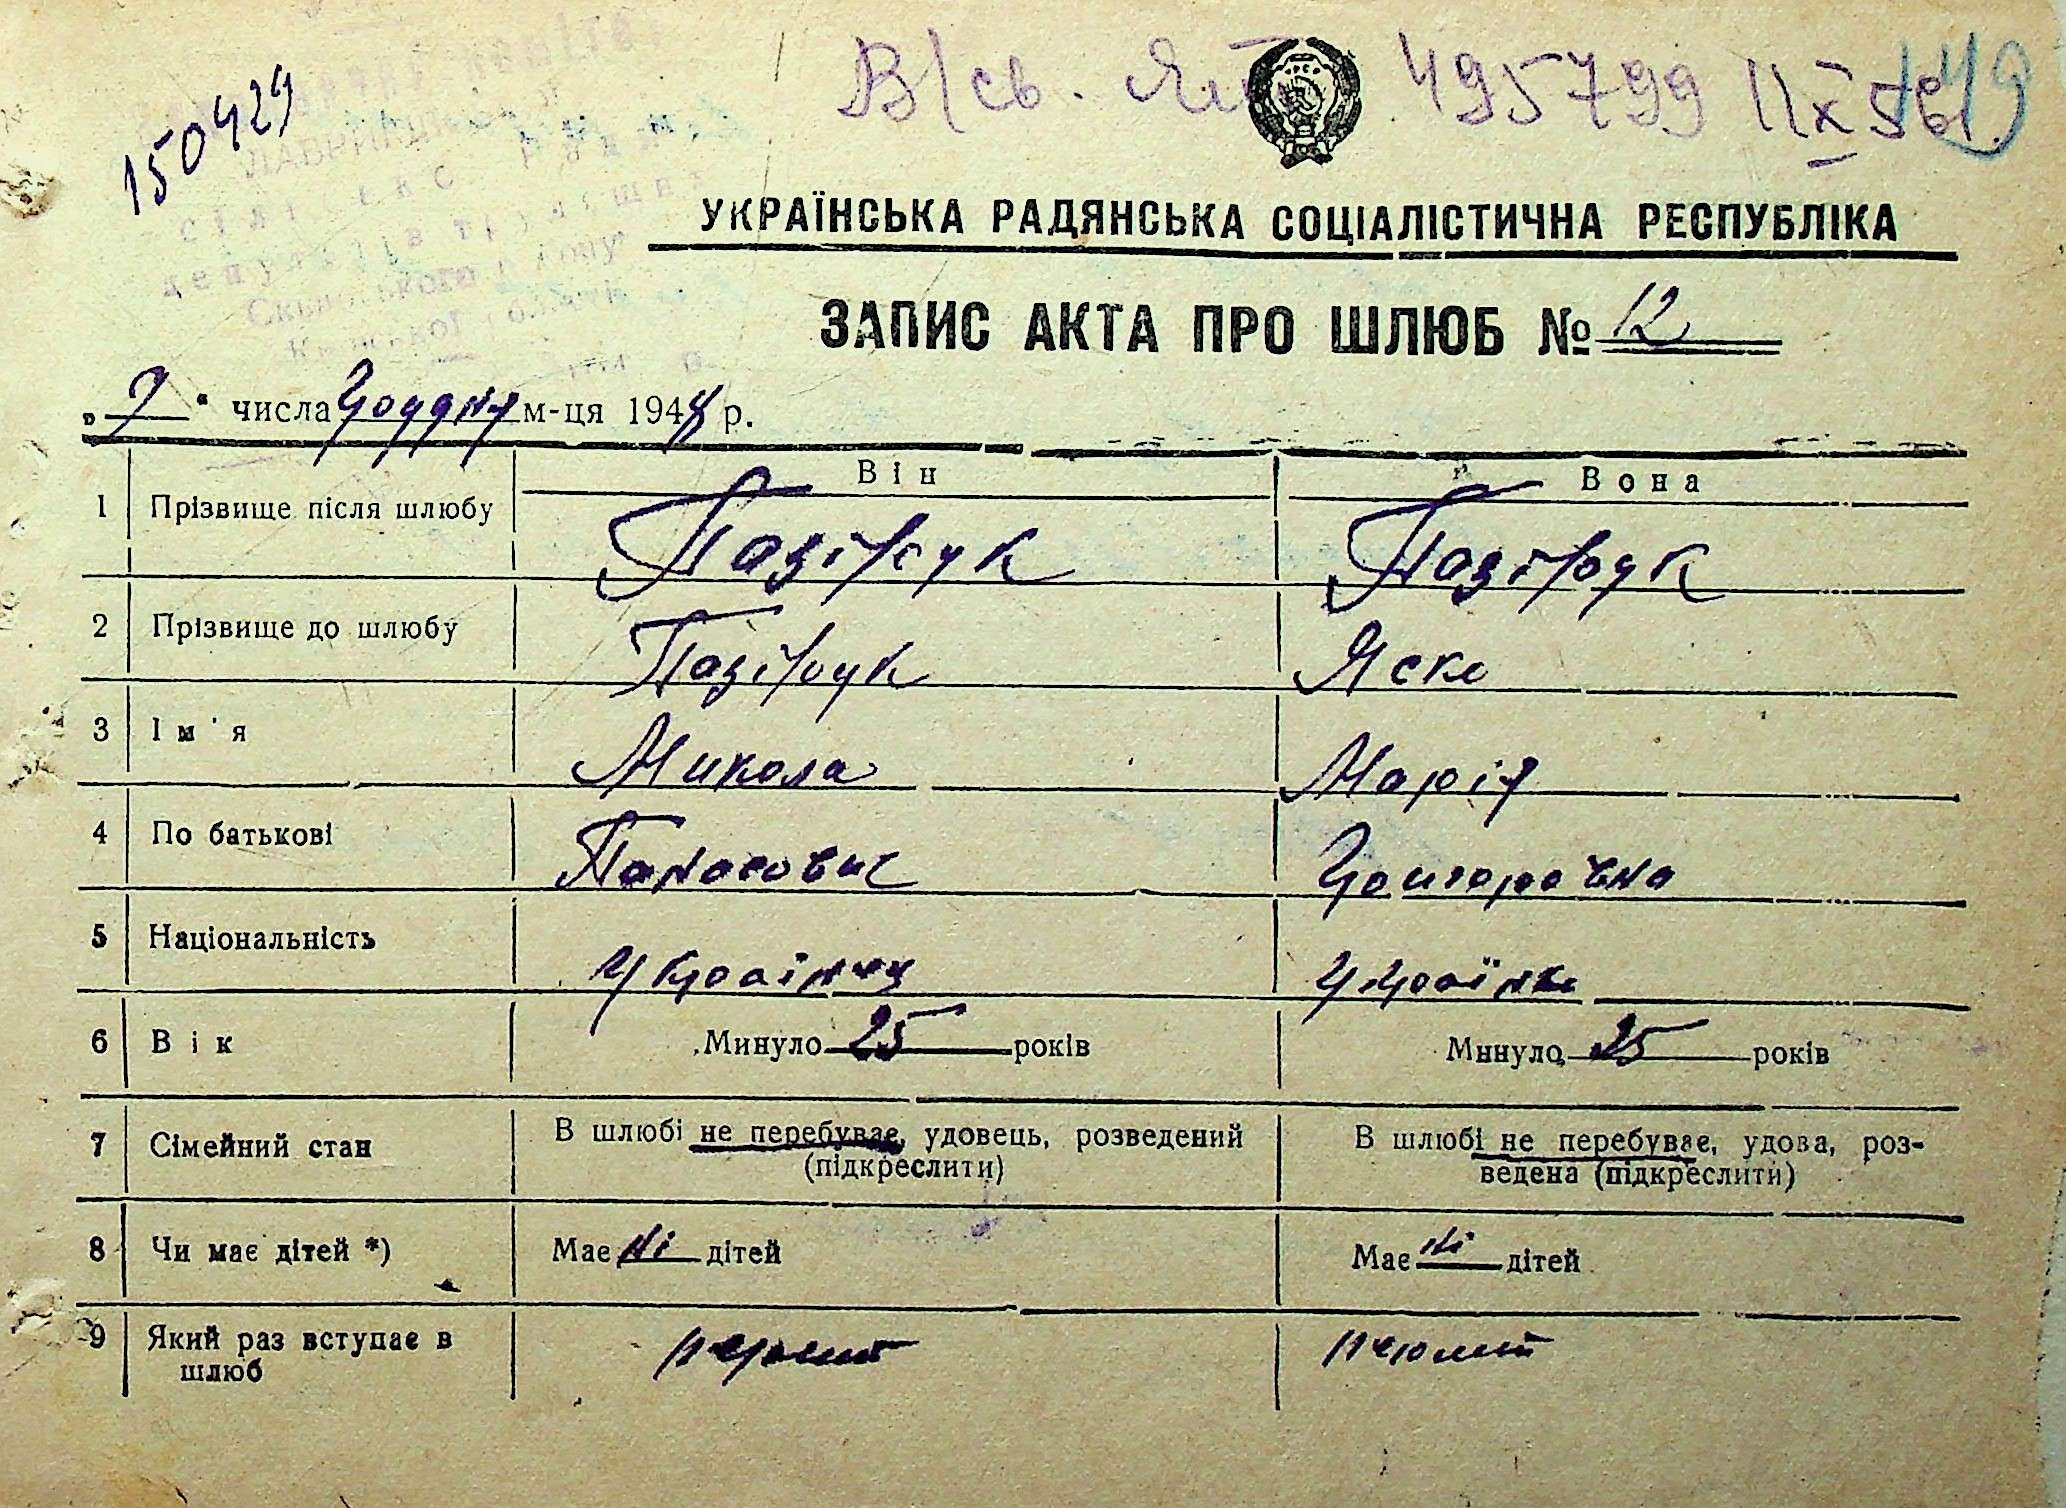 150429
В/св. 495799 11 X 56
УКРАЇНСЬКА РАДЯНСЬКА СОЦІАЛІСТИЧНА РЕСПУБЛІКА
ЗАПИС АКТА ПРО ШЛЮБ № 12
„7“ числа Грудня м-ця 1948 р.
Він Вона
1 Прізвище після шлюбу Пазірук Пазірук
2 Прізвище до шлюбу Пазірук Яско
3 Ім'я Микола Марія
4 По батькові Панасович Григоровна
5 Національність Українец Українка
6 Вік Минуло 25 років Минуло 25 років
7 Сімейний стан В шлюбі не перебуває, удовець, розведений В шлюбі не перебуває, удова, роз-
(підкреслити) ведена (підкреслити)
8 Чи має дітей *) Має ні дітей Має ні дітей
9 Який раз вступає в перший перший
шлюб